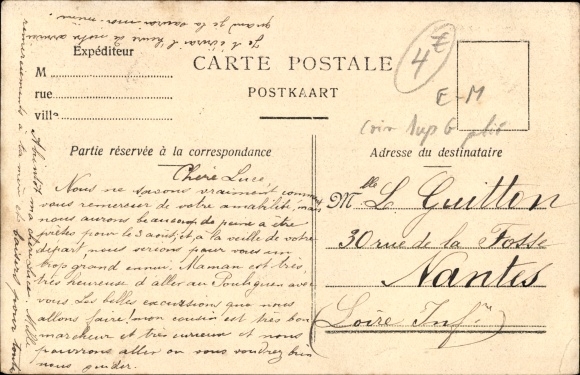 Je t'écrirai l'heure de notre arrivée
quand je la saurai moi-même.
Expéditeur
M
rue
ville
CARTE POSTALE
POSTKAART
4 €
E-M
coin sup G plié
Partie réservée à la correspondance
Adresse du destinataire
Chère Luce,
Nous ne savons vraiment comment
vous remercier de votre amabilité, mais
nous aurons beaucoup de peine à être
prêtes pour le 3 août, et à la veille de votre
départ, nous serions pour vous un
trop grand ennui. Maman est très,
très heureuse d'aller au Pouliguen avec
vous. Les belles excursions que nous
allons faire! mon cousin est très bon
marcheur et très curieux et nous
pourrons aller où vous voudrez bien
nous guider.
Mlle L. Guitton
30 rue de la Fosse
Nantes
(Loire Infre)
A bientôt ma chère
remerciements à ta mère et baisers pour toute